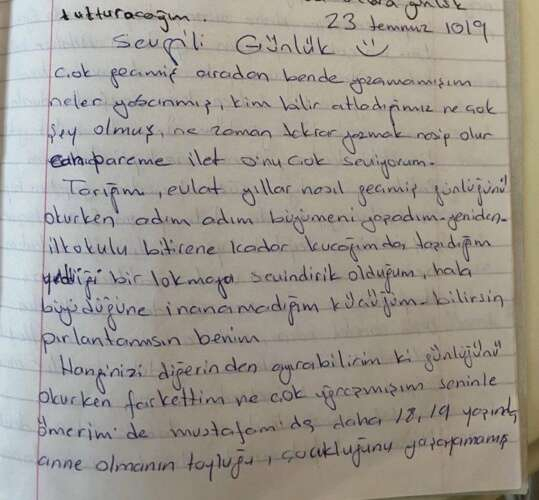 tutturacağım.
23 temmuz 1019
Sevgili Günlük
Çok geçmiş aradan bende yazamamışım
neler yaşanmış, kim bilir atladığımız ne çok
şey olmuş, ne zaman tekrar yazmak nasip olur
pareme ilet onu çok seviyorum.
Tarığım, evlat yıllar nasıl geçmiş günlüğünü
okurken adım adım büyümeni yaşadım yeniden
ilkokulu bitirene kadar kucağımda taşıdığım
yediği bir lokmaya sevindirik olduğum, hala
büyüdüğüne inanamadığım küçüğüm bilirsin
pırlantamsın benim
Hanginizi diğerinden ayırabilirim ki günlüğünü
okurken farkettim ne çok uğraşmışım seninle
ömerim'de mustafam'da daha 18, 19 yaşında
anne olmanın toyluğu, çocukluğunu yaşayamamış